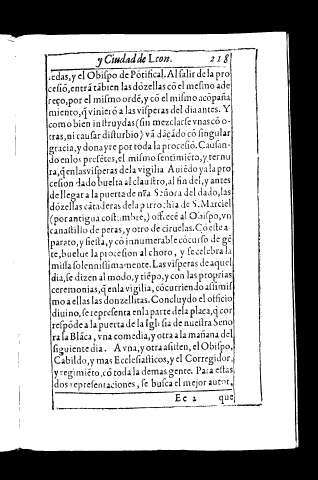 y Ciudad de Leon. 218
sedas, y el Obispo de Põtifical. Al salir de la pro
cesiõ, entrã tãbien las dõzellas cõ el mesmo ade
reço, por el mismo ordẽ, y cõ el mismo acõpaña
miento, q̃ vinierõ a las visperas del dia antes. Y
como bien instruydas (sin mezclarse vnas cõ o-
tras, ni causar disturbio) vã dãçãdo cõ singular
gracia, y donayre por toda la procesiõ. Causan-
do en los presẽtes, el mismo sentimiẽto, y ternu
ra, q̃ en las visperas de la vigilia Auiẽdo ya la pro
cesion dado buelta al claustro, al fin del, y antes
de llegar a la puerta de nr̃a Señora del dado, las
dõzellas cãtaderas de la parrochia de S. Marciel
(por antigua costumbre,) offrecẽ al Obispo, vn
canastillo de peras, y otro de ciruelas. Cõ este a-
parato, y fiesta, y cõ innumerable cõcurso de gẽ
te, buelue la procesion al choro, y se celebra la
missa solennissimamente. Las visperas de aquel
dia, se dizen al modo, y tiẽpo, y con las proprias
ceremonias, q̃ en la vigilia, cõcurriendo assimis
mo a ellas las donzellitas. Concluydo el officio
diuino, se representa en la parte de la plaça, q̃ cor
respõde a la puerta de la Iglesia de nuestra Seño
ra la Blãca, vna comedia, y otra a la mañana del
siguiente dia. A vna, y otra asisten, el Obispo,
Cabildo, y mas Ecclesiasticos, y el Corregidor,
y regimiẽto, cõ toda la demas gente. Para estas
dos representaciones, se busca el mejor autor,
Ee 2 que